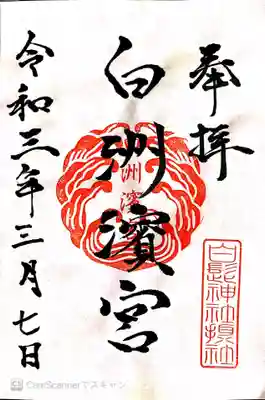 奉拝
白洲濱宮
洲濱
令和三年三月七日
白髭神社
CamScannerでスキャン